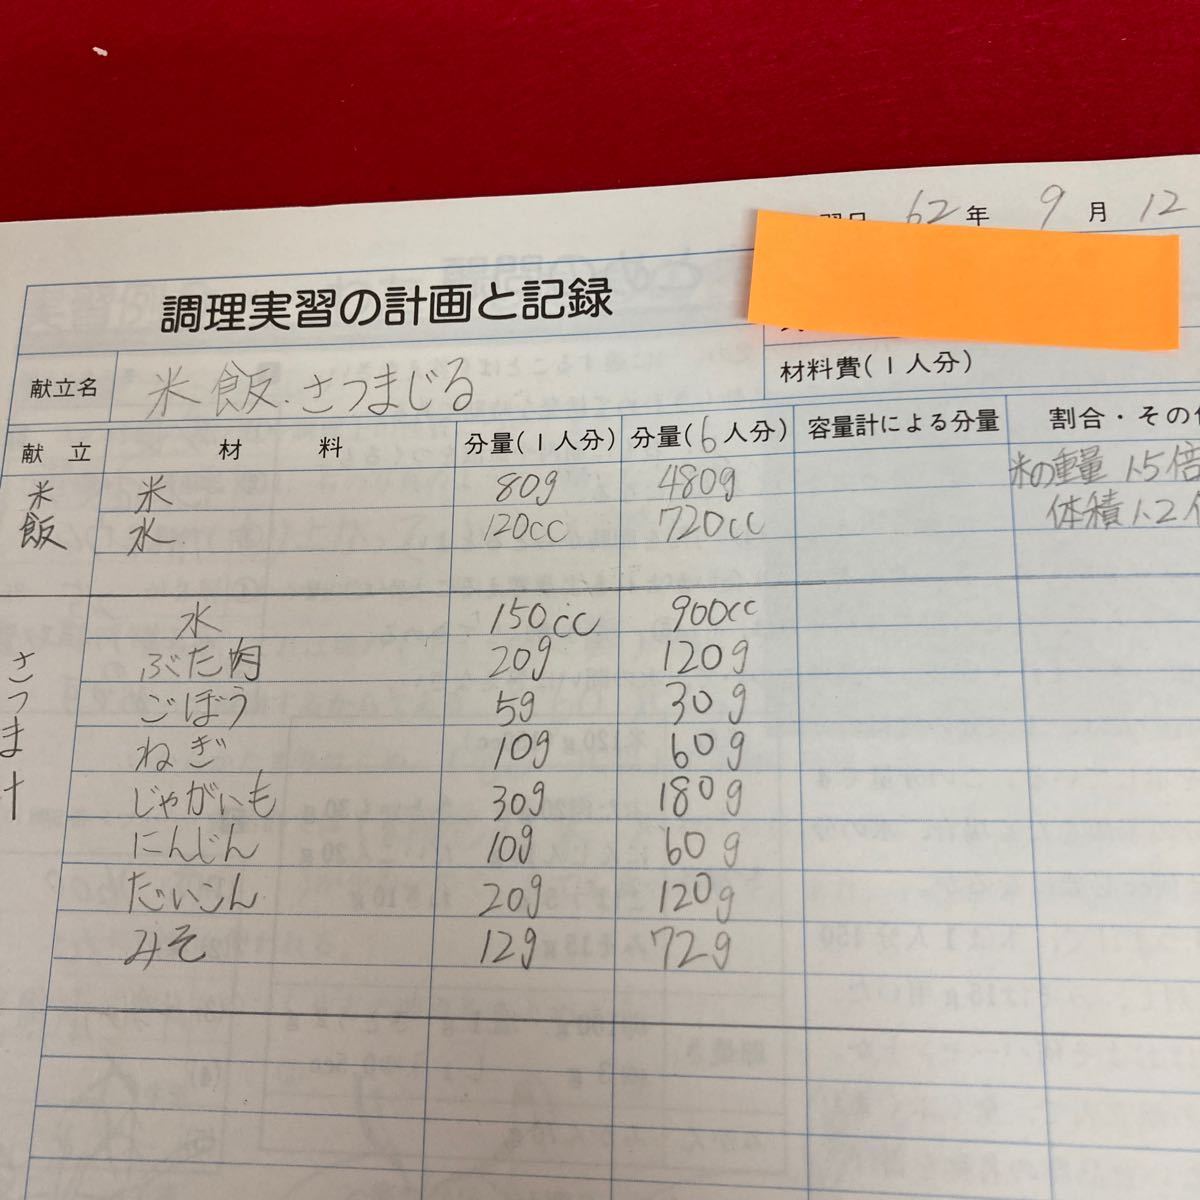 62年 9月 12
調理実習の計画と記録
献立名 米飯.さつまじる
材料費(1人分)
献立 材料 分量(1人分) 分量(6人分) 容量計による分量 割合・その
米飯 米 80g 480g 米の重量1.5倍
水 120cc 720cc 体積1.2
さつま汁 水 150cc 900cc
ぶた肉 20g 120g
ごぼう 5g 30g
ねぎ 10g 60g
じゃがいも 30g 180g
にんじん 10g 60g
だいこん 20g 120g
みそ 12g 72g